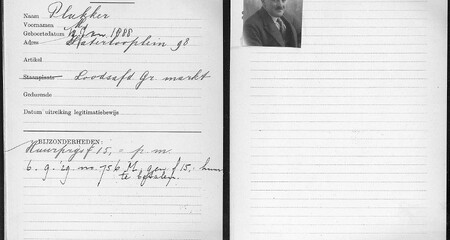 Naam Plukker
Voornamen M.
Geboortedatum 12 Jan 1888
Adres Waterlooplein 98
Artikel
Standplaats Loodsafd Gr. markt
Gedurende
Datum uitreiking legitimatiebewijs
BIJZONDERHEDEN:
f 15,= p. m
6. 9. '29. no. 756 M. f 15,-
te betalen.